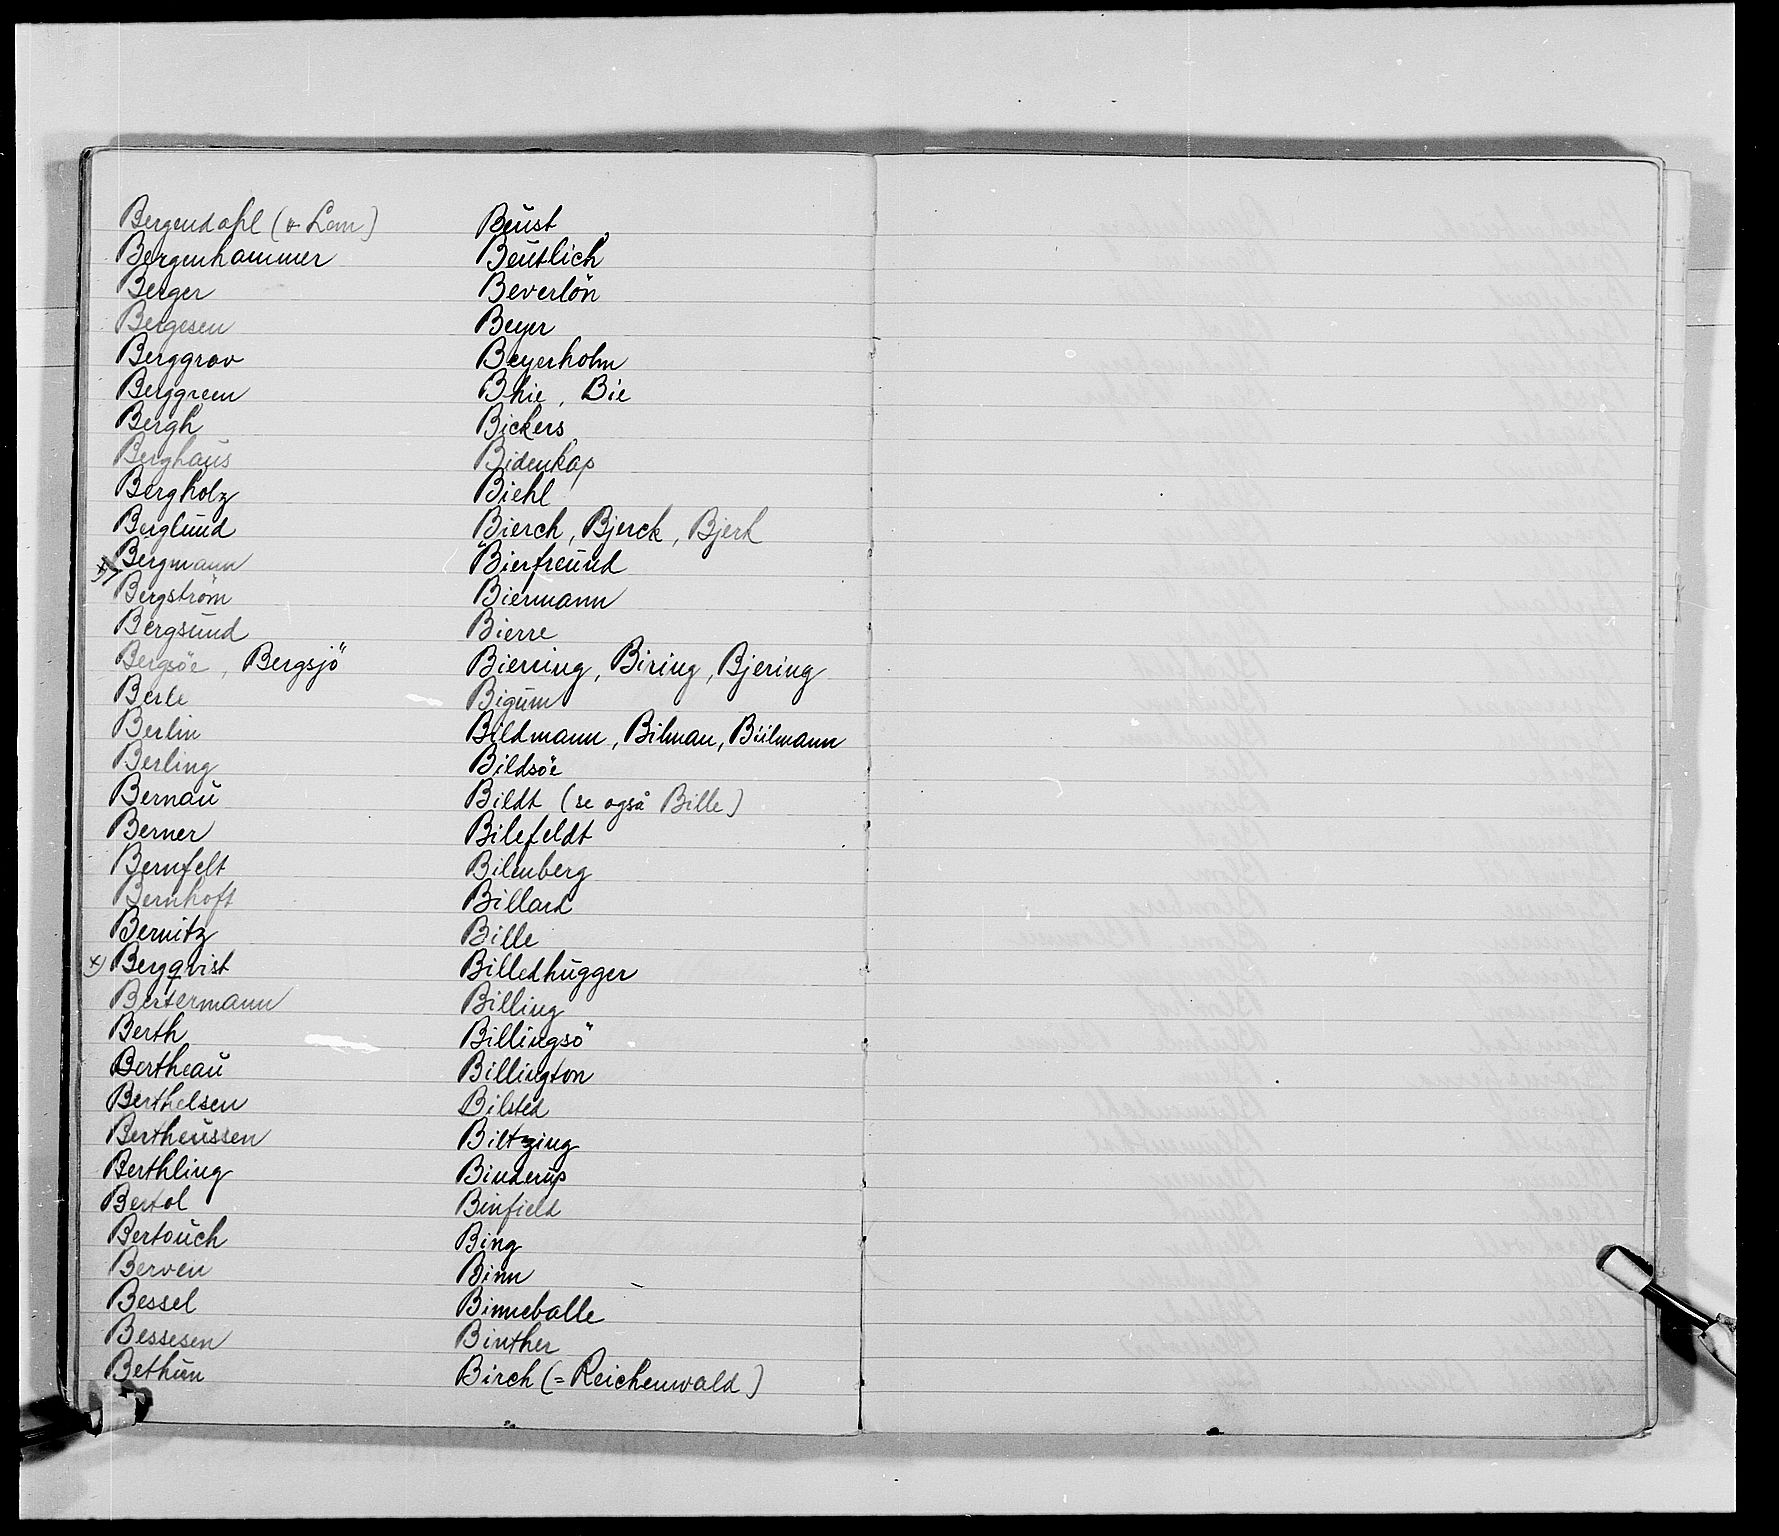 Bergendahl (v. Lem)
Bergenhammer
Berger
Bergesen
Berggrav
Berggreen
Bergh
Berghaus
Bergholz
Berglund
x) Bergmann
Bergström
Bergsund
Bergsöe, Bergsjö
Berle
Berlin
Berling
Bernau
Berner
Bernfelt
Bernhoft
Bernitz
x) Berqvist
Bertermann
Berth
Bertheau
Berthelsen
Bertheussen
Berthling
Bertol
Bertouch
Berven
Bessel
Bessesen
Bethun
Beust
Beutlich
Beverlön
Beyer
Beyerholm
Bhie, Bie
Bickers
Bidenkap
Biehl
Bierch, Bjerck, Bjerk
Bierfreund
Biermann
Bierre
Bierring, Biring, Bjering
Bigum
Bildmann, Bilman, Büilmann
Bildsöe
Bildt (se også Bille)
Bilefeldt
Bilenberg
Billard
Bille
Billedhugger
Billing
Billingsö
Billington
Bilsted
Biltzing
Binderup
Binfield
Bing
Binn
Binneballe
Binther
Birch (= Reichenwald)